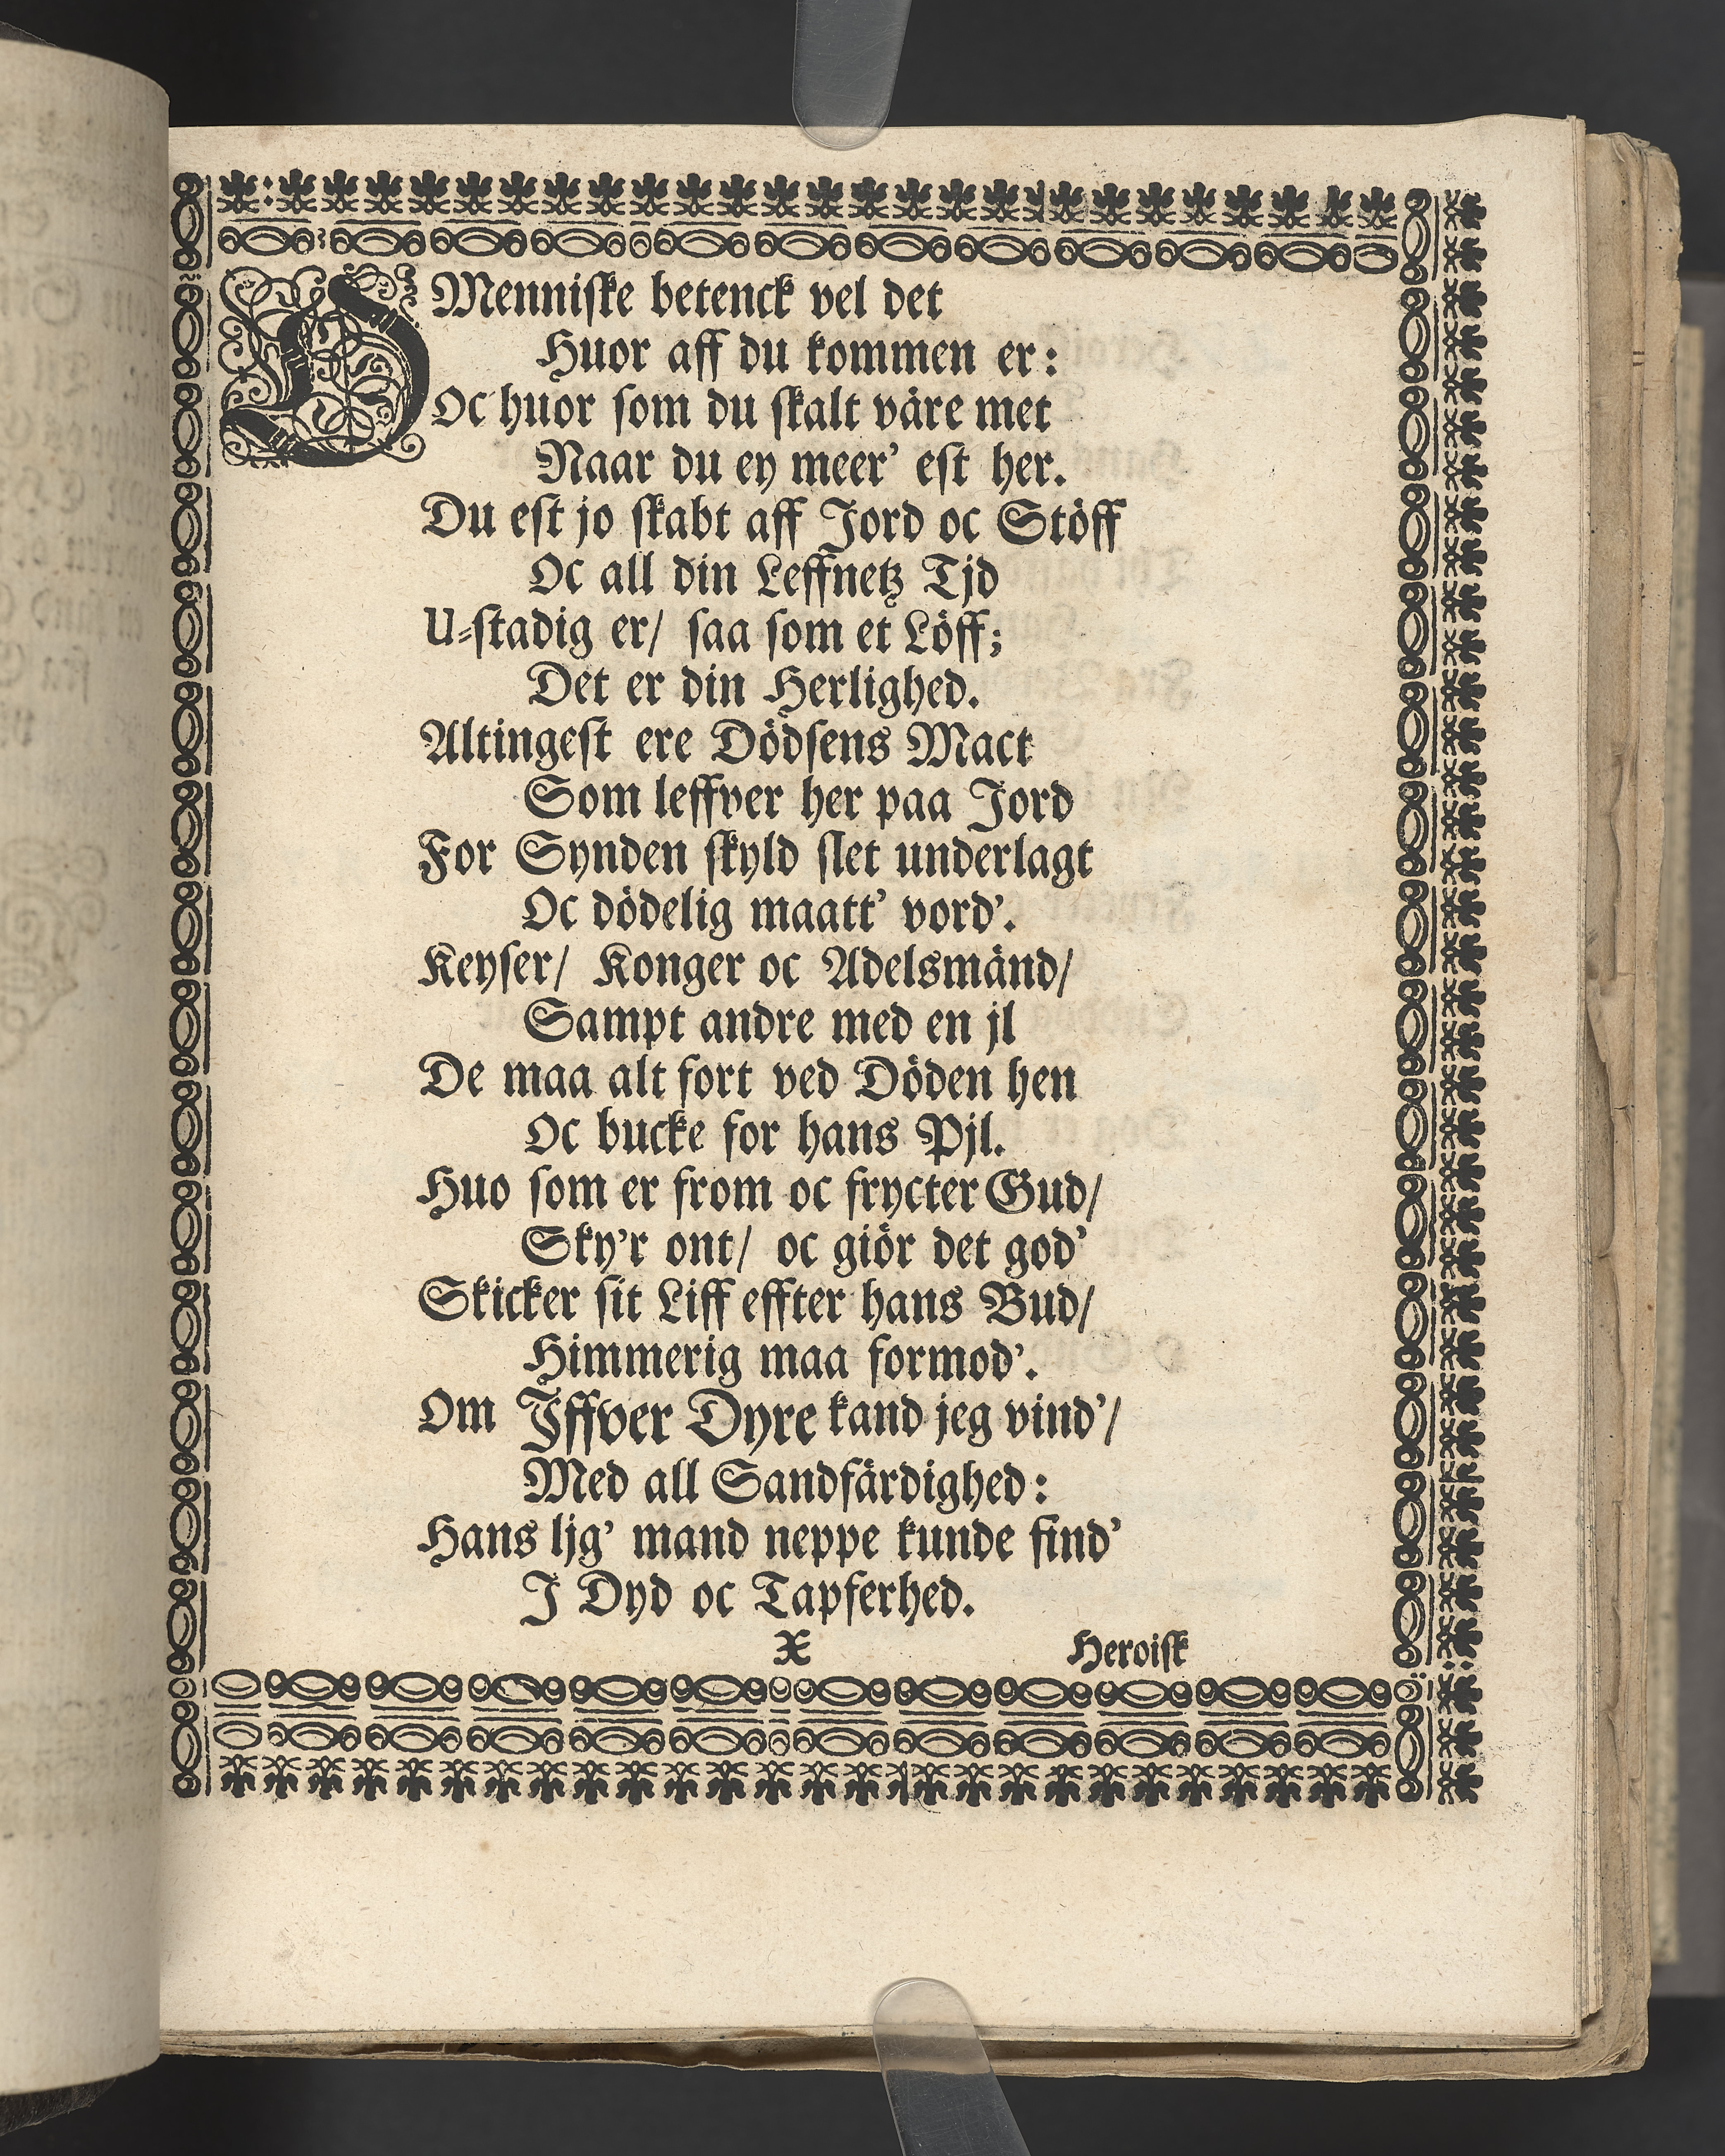 O Menniſke betenck vel det
Huor aff du kommen er:
Oc huor ſom du ſkalt väre met
Naar du ey meer' eſt her.
Du eſt jo ſkabt aff Jord oc Stöff
Oc all din Leffnetz Tjd
U-ſtadig er/ ſaa ſom et Löff;
Det er din Herlighed.
Altingeſt ere Dödſens Mact
Som leffver her paa Jord
For Synden ſkyld ſlet underlagt
Oc dödelig maatt' vord'.
Keyſer/ Konger oc Adelsmänd/
Sampt andre med en jl
De maa alt fort ved Döden hen
Oc bucke for hans Pjl.
Huo ſom er from oc frycter Gud/
Sky'r ont/ oc giör det god'
Skicker ſit Liff effter hans Bud/
Himmerig maa formod'.
Om Jffver Dyre kand jeg vind'/
Med all Sandfärdighed:
Hans ljg' mand neppe kunde find'
J Dyd oc Tapferhed.
X Heroiſk